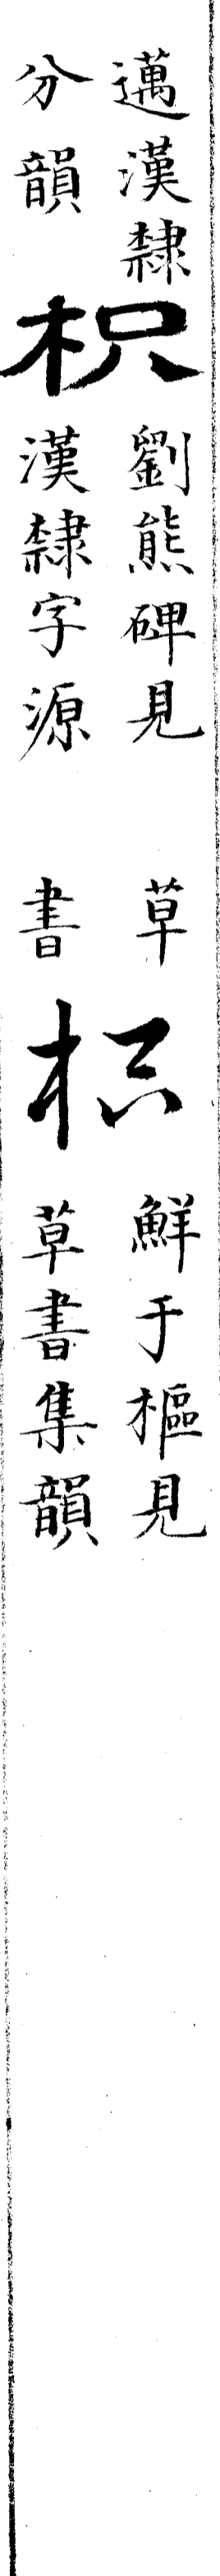 邁漢隸
分韻
枳
劉熊碑見
漢隸字源
草
書
枳
鮮于樞見
草書集韻